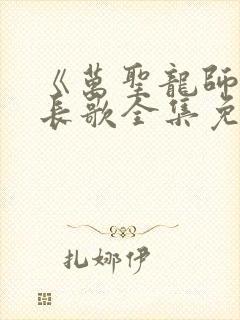 《萬聖龍師
長歌全集免
扎娜伊